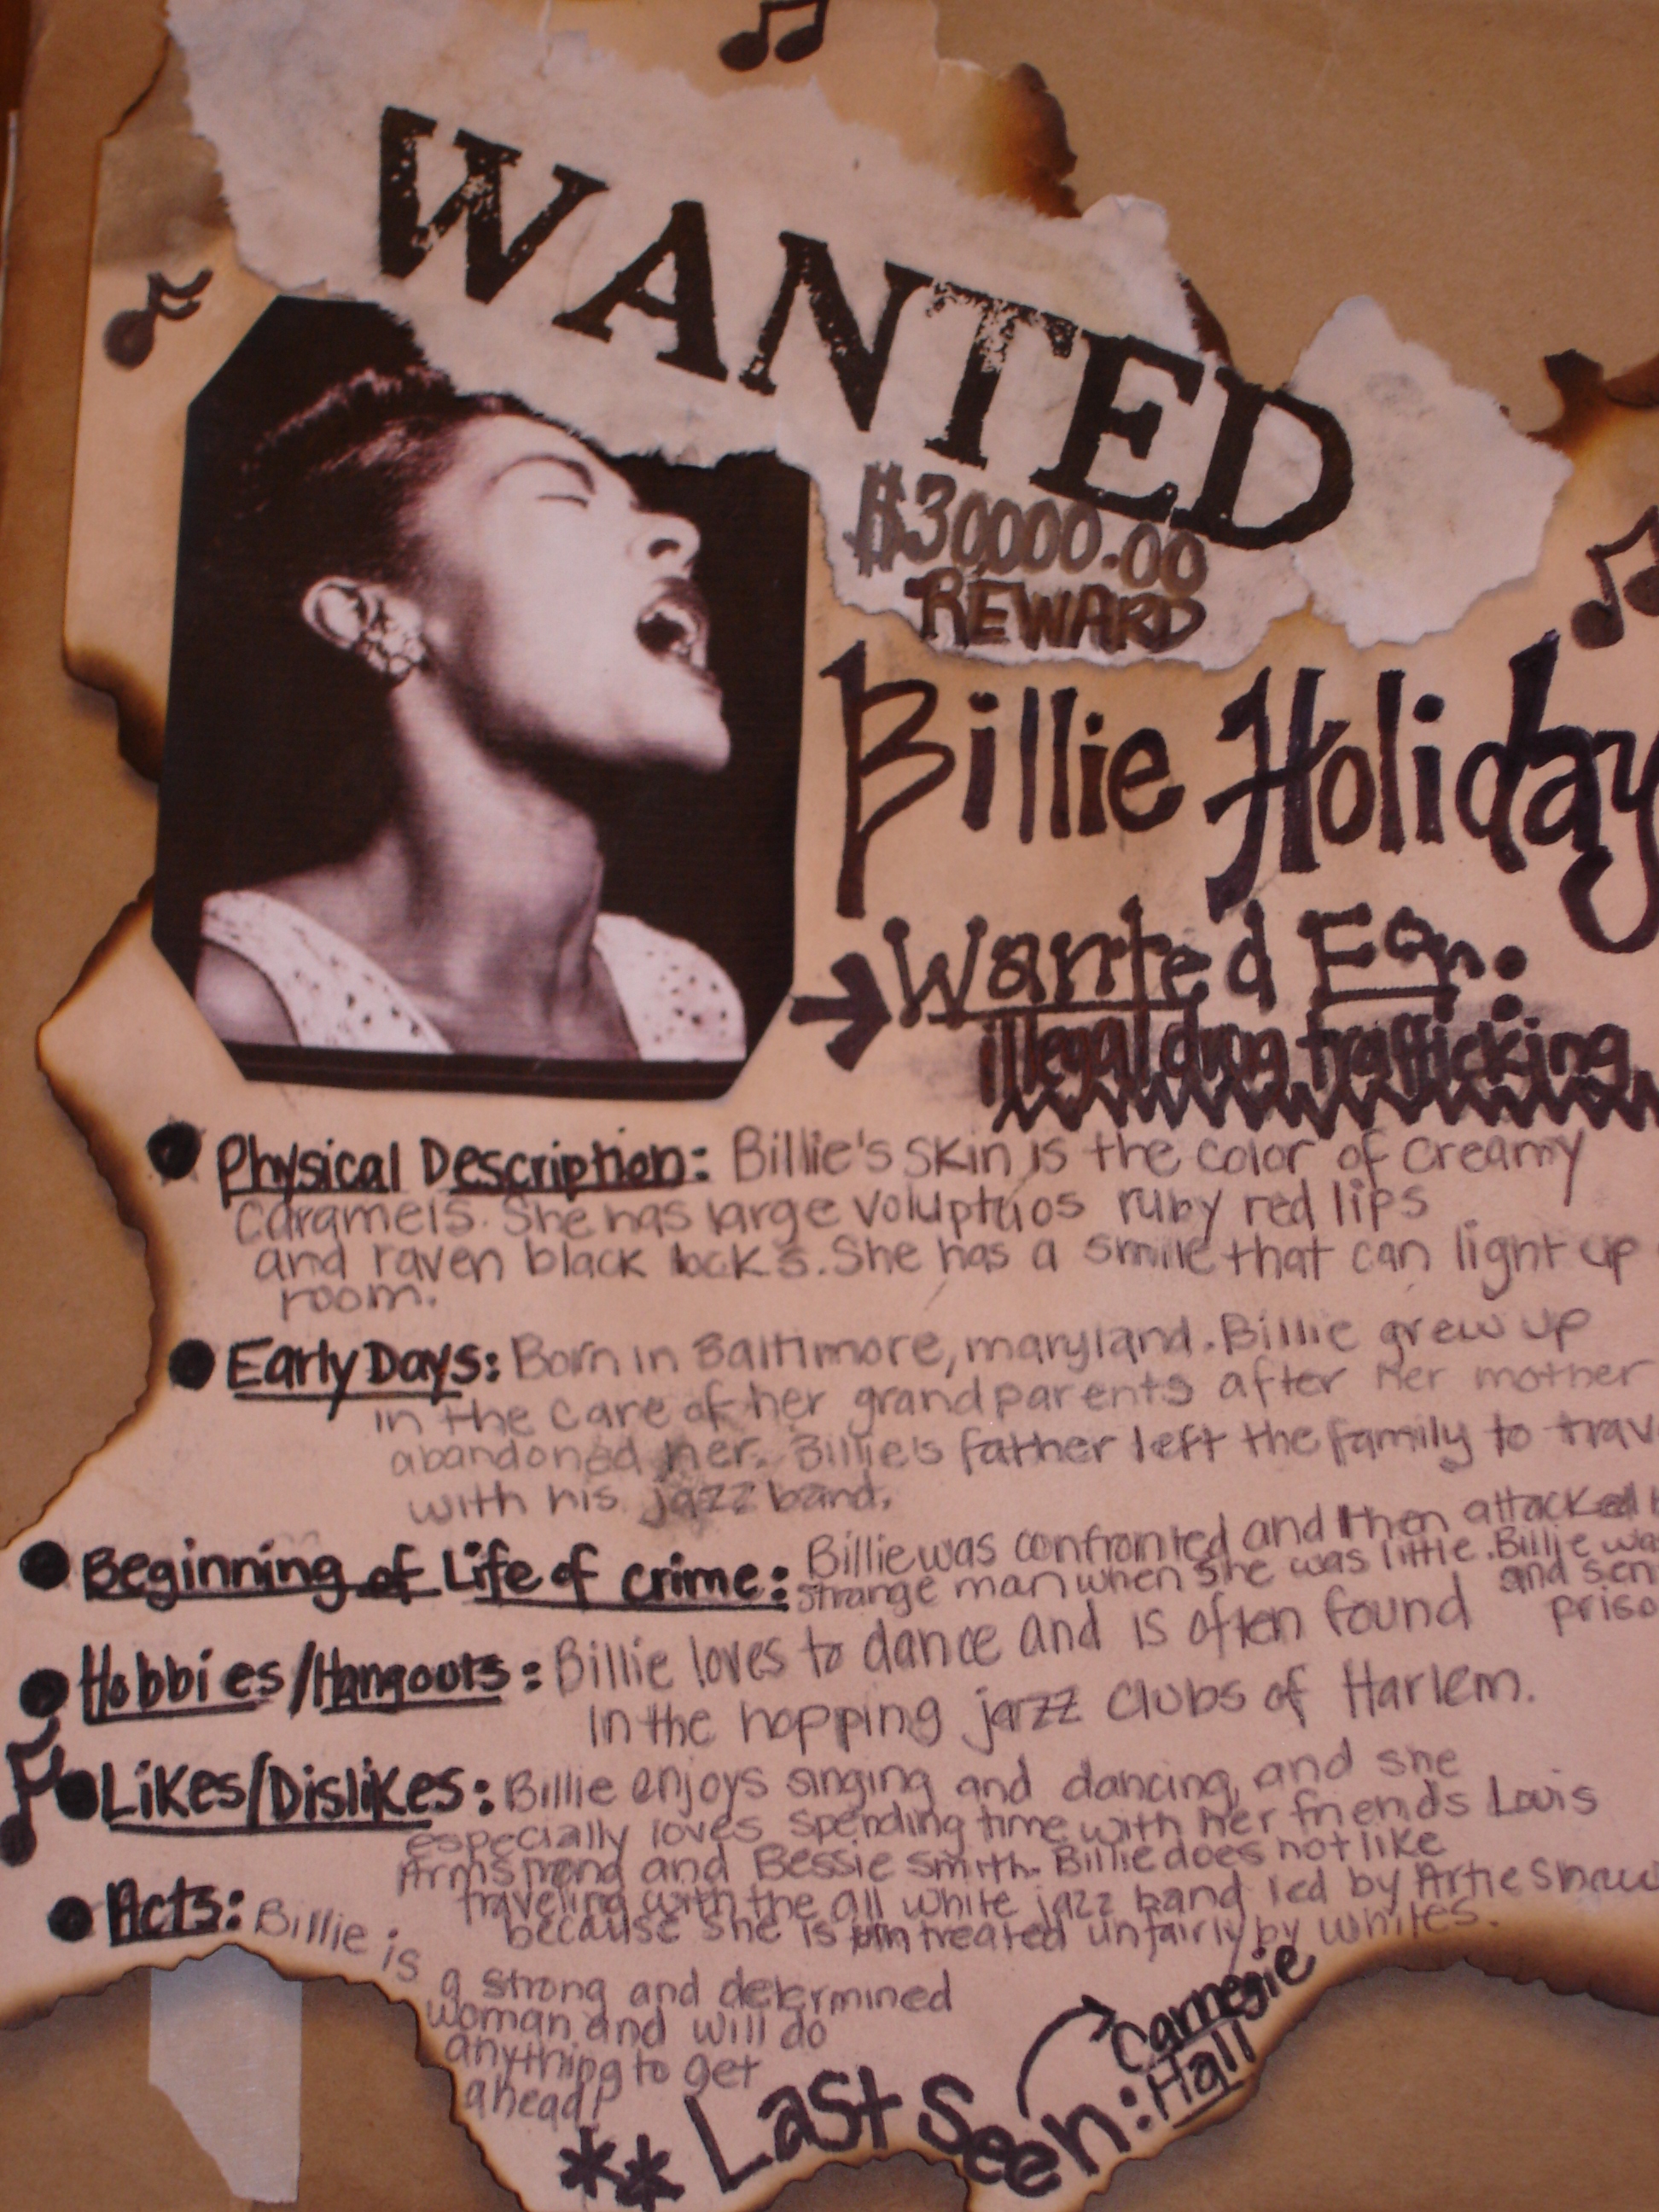 WANTED
$30,000.00
REWARD
Billie Holiday
Wanted For:
illegal drug trafficking
Physical Description: Billie's skin is the color of creamy
caramels. She has large voluptuos ruby red lips
and raven black locks. She has a smile that can light up
room.
Early Days: Born in Baltimore, maryland. Billie grew up
in the care of her grandparents after her mother
abandoned her. Billie's father left the family to trav
with his jazz band.
Beginning of Life of crime: Billie was confronted and then attacked
strange man when she was little. Billie was
and sen
priso
Hobbies/Hangouts: Billie loves to dance and is often found
in the hopping jazz clubs of Harlem.
Likes/Dislikes: Billie enjoys singing and dancing, and she
especially loves spending time with her friends Louis
Armstrong and Bessie Smith. Billie does not like
traveling with the all white jazz band led by Artie Shaw
because she is treated unfairly by whites.
Acts: Billie is
a strong and determined
woman and will do
anything to get
ahead!
** Last Seen: Carnegie
Hall